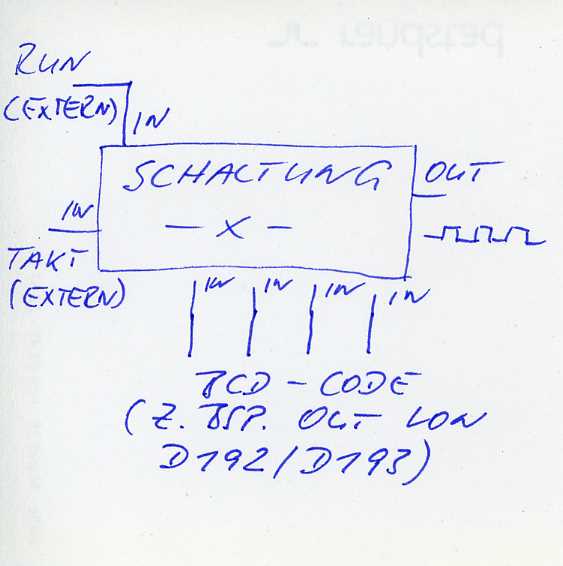 RUN
(EXTERN)
IN
SCHALTUNG
- X -
OUT
IN
TAKT
(EXTERN)
IN IN IN IN
BCD - CODE
(Z. BSP. OUT VON
D192/D193)